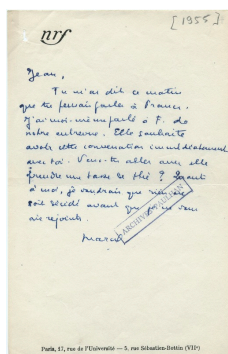 [1955]
nrf
Jean,
Tu m'as dit ce matin
que tu ferais parler à France.
J'ai moi-même parlé à F. de
notre entrevue. Elle souhaite
avoir cette conversation immédiatement
avec toi. Veux-tu aller avec elle
prendre une tasse de thé ? Quant
à moi, je voudrais que rien ne
soit décidé avant que je ne vous
aie rejoints.
Marcel
ARCHIVES PAULHAN
Paris, 17, rue de l'Université — 5, rue Sébastien-Bottin (VIIe)